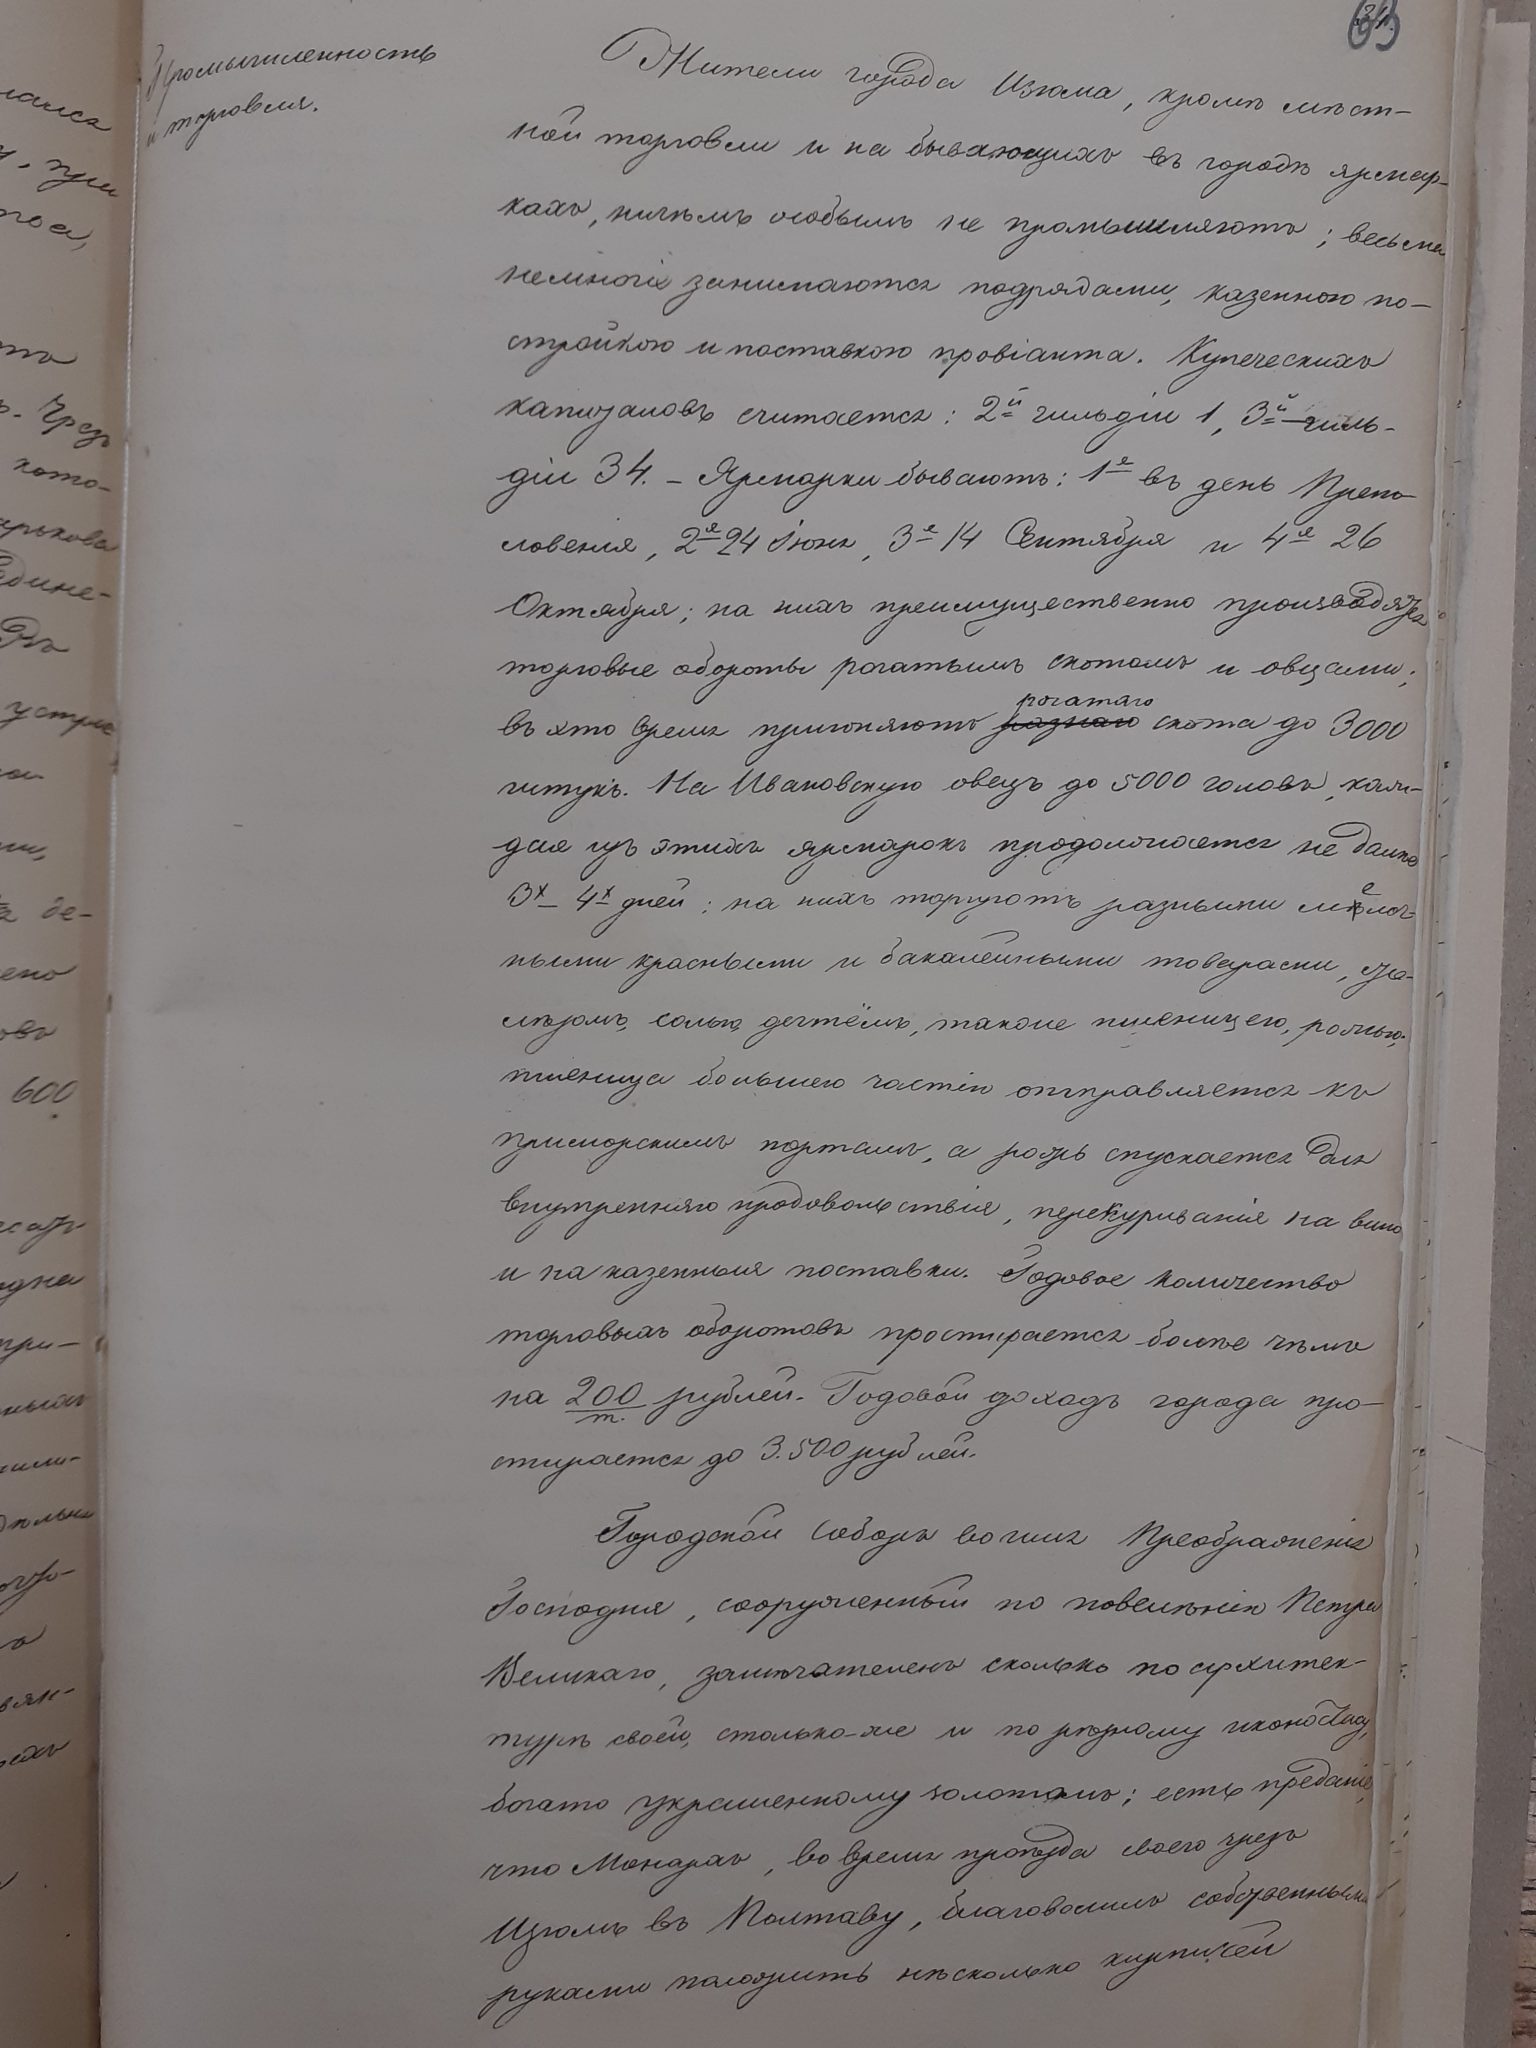 Промышленность
и торговля.
Жители города Изюма, кромѣ мѣст-
ной торговли и на бывающихъ въ городѣ ярмар-
кахъ, ничѣмъ особымъ не промышляютъ; весьма
немногіе занимаются подрядами, казенною по-
стройкою и поставкою провіанта. Купеческихъ
капиталовъ считается: 2й гильдіи 1, 3й гиль-
діи 34. – Ярмарки бываютъ: 1я въ день Препо-
ловенія, 2я 24 Іюня, 3я 14 Сентября и 4я 26
Октября; на нихъ преимущественно производятся
торговые обороты рогатымъ скотомъ и овцами;
рогатаго
въ это время пригоняютъ разнаго скота до 3000
штукъ. На Ивановскую овецъ до 5000 головъ, каж-
дая изъ этихъ ярмарокъ продолжается не далѣе
3х – 4х дней; на нихъ торгуютъ разными мелоч-
ными красными и бакалейными товарами, же-
лѣзомъ, солью, дегтёмъ, также пшеницею, рожью;
пшеница большею частію отправляется къ
приморскимъ портамъ, а рожь спускается для
внутренняго продовольствія, перекуриванія на вино
и на казенныя поставки. Годовое количество
торговыхъ оборотовъ простирается болѣе чѣмъ
на 200/т. рублей. Годовой доходъ города про-
стирается до 3.500 рублей.
Городской соборъ во имя Преображенія
Господня, сооруженный по повелѣнію Петра
Великаго, замѣчателенъ сколько по архитек-
турѣ своей, столько-же и по рѣзному иконостасу,
богато украшенному золотомъ; есть преданіе,
что Монархъ, во время проѣзда своего чрезъ
Изюмъ въ Полтаву, благоволилъ собственными
руками положить нѣсколько кирпичей